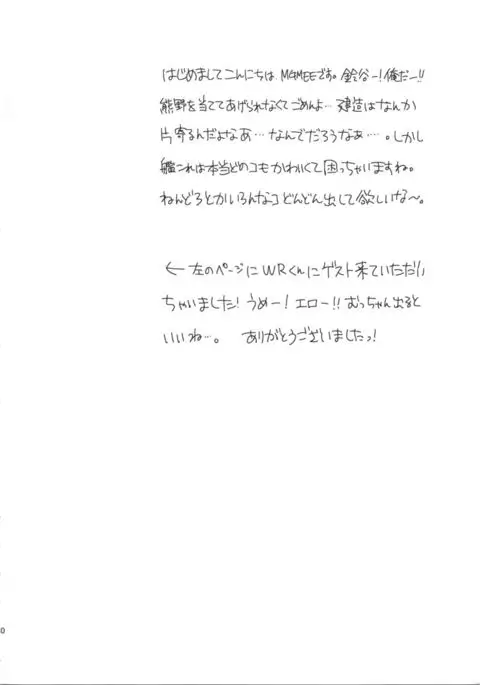 はじめましてこんにちは、M4MEEです。鈴谷ー!俺だー!!
熊野を当ててあげられなくてごめんよ… 建造はなんか
片寄るんだよなあ…なんでだろうなぁ…。しかし
艦これは本当どのコもかわいくて困っちゃいますね。
ねんどろとかいろんなコどんどん出して欲しいな〜。
← 左のページにWRくんにゲスト来ていただい
ちゃいました! うめー! エロー!! むっちゃん出ると
いいね…。 ありがとうございましたっ!
0